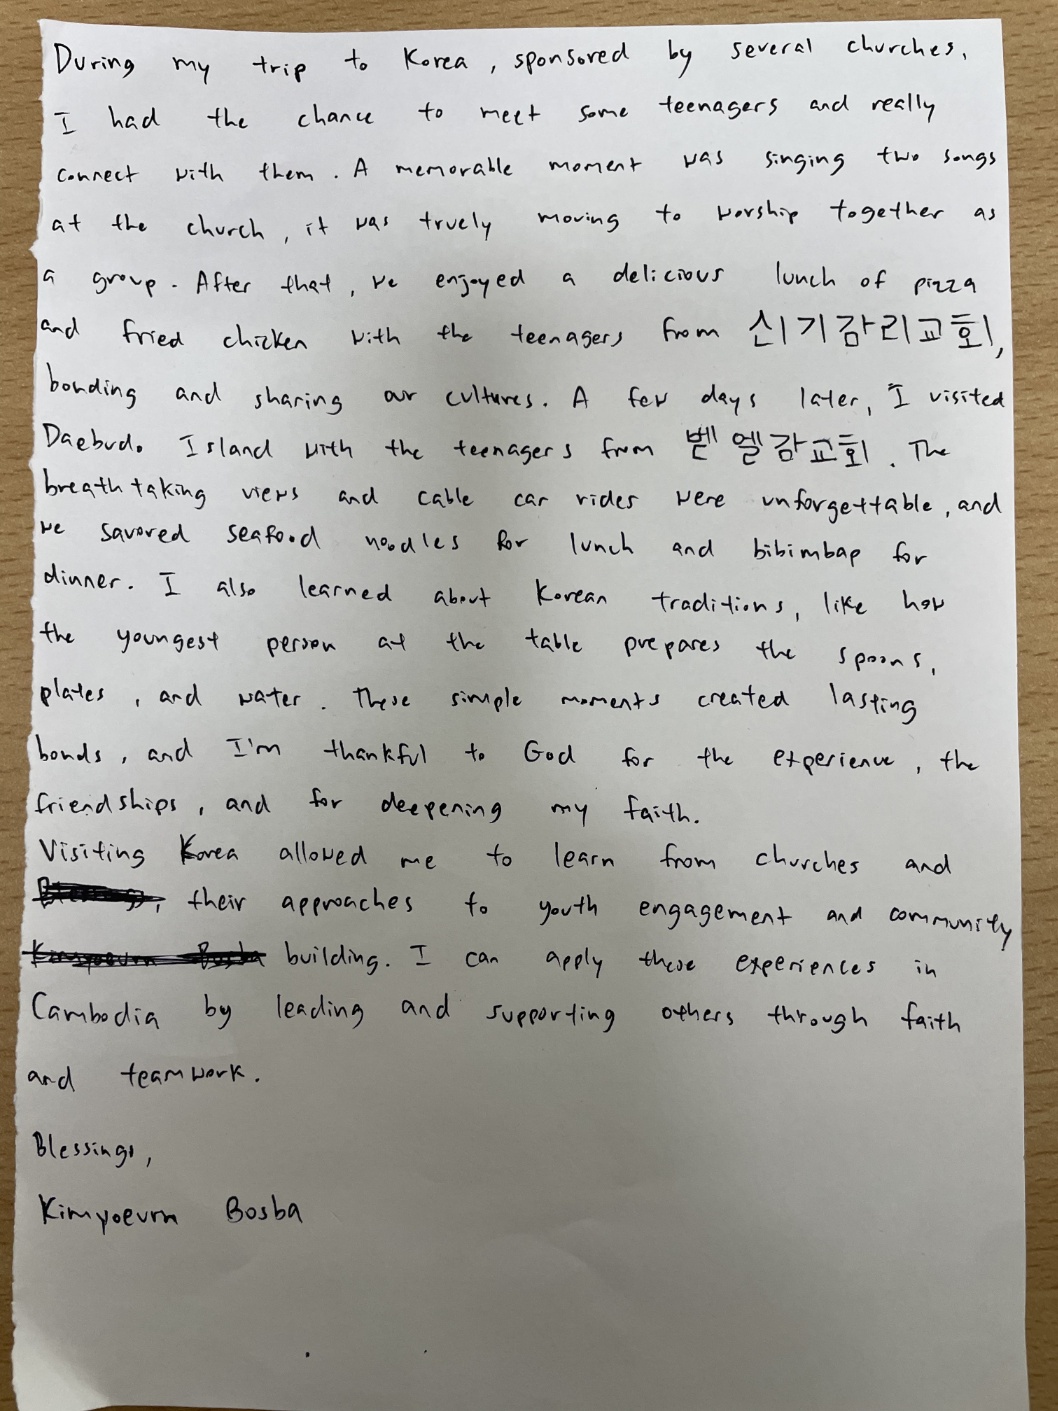 During my trip to Korea, sponsored by several churches,
I had the chance to meet some teenagers and really
connect with them. A memorable moment was singing two songs
at the church, it was truely moving to worship together as
a group. After that, we enjoyed a delicious lunch of pizza
and fried chicken with the teenagers from 신기감리교회,
bonding and sharing our cultures. A few days later, I visited
Daebudo Island with the teenagers from 벧엘감교회. The
breathtaking views and cable car rides were unforgettable, and
we savored seafood noodles for lunch and bibimbap for
dinner. I also learned about Korean traditions, like how
the youngest person at the table prepares the spoons,
plates, and water. These simple moments created lasting
bonds, and I'm thankful to God for the experience, the
friendships, and for deepening my faith.
Visiting Korea allowed me to learn from churches and
their approaches to youth engagement and community
building. I can apply these experiences in
Cambodia by leading and supporting others through faith
and teamwork.
Blessings,
Kimyoeurn Bosba